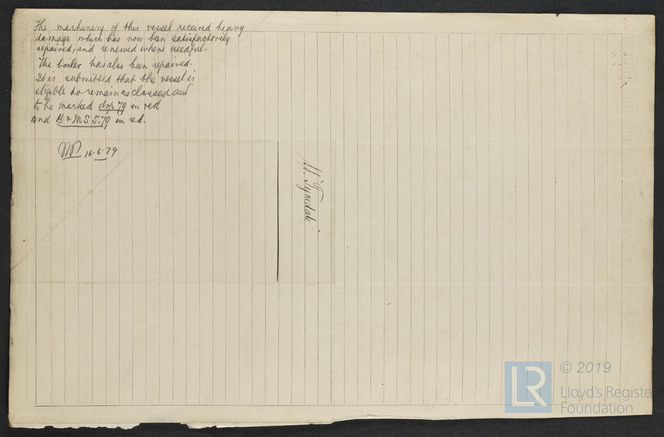 The machinery of this vessel received heavy
damage which has now been satisfactorily
repaired, and renewed where needful.
The boiler has also been repaired.
It is submitted that the vessel is
eligible to remain as classed and
to be marked 79 in red
and B&MS 5,79 in red.
16.6.79
Tynedale
LR
© 2019
Lloyd's Register
Foundation